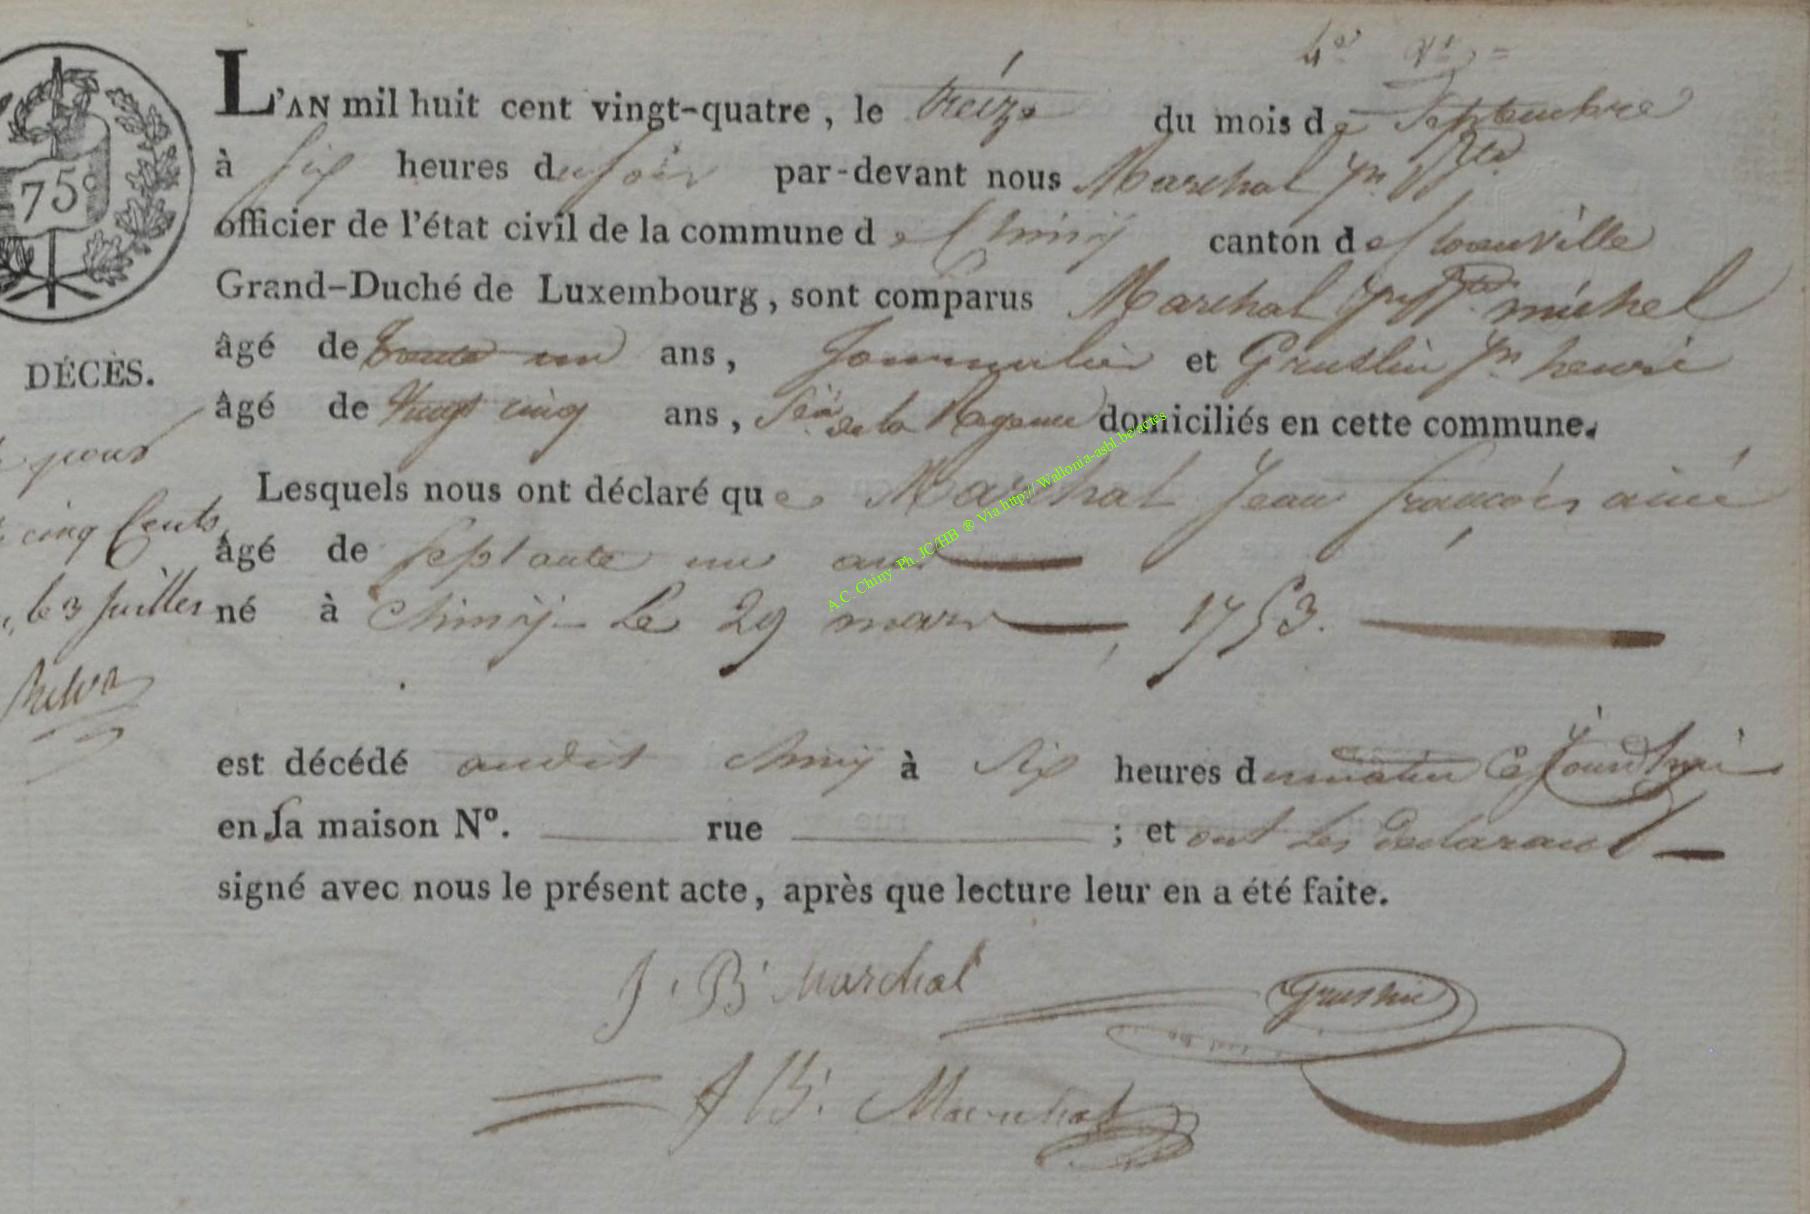 4e
L'AN mil huit cent vingt-quatre, le treize du mois de Septembre
à six heures du soir par-devant nous Marchal Jn Bte
officier de l'état civil de la commune de Chiny canton de florenville
Grand-Duché de Luxembourg, sont comparus Marchal Jn Bte michel
âgé de trente un ans, Journalier et Gruslin Jn henri
âgé de Vingt cinq ans, de la Regence domiciliés en cette commune.
Lesquels nous ont déclaré que Marchal Jean françois ainé
âgé de septante un ans
né à Chiny Le 29 mars 1753.
est décédé audit Chiny à six heures du matin Cejourd'hui
en sa maison N°. rue ; et ont les declarant
signé avec nous le présent acte, après que lecture leur en a été faite.
J. B. Marchal
Gruslin
J B. Marchal
75c
DÉCÈS.
pour
cinq Cents
le 3 Juillet
A.C. Chiny Ph. JC/HB ® Via http:// Wallonia-asbl.be/actes